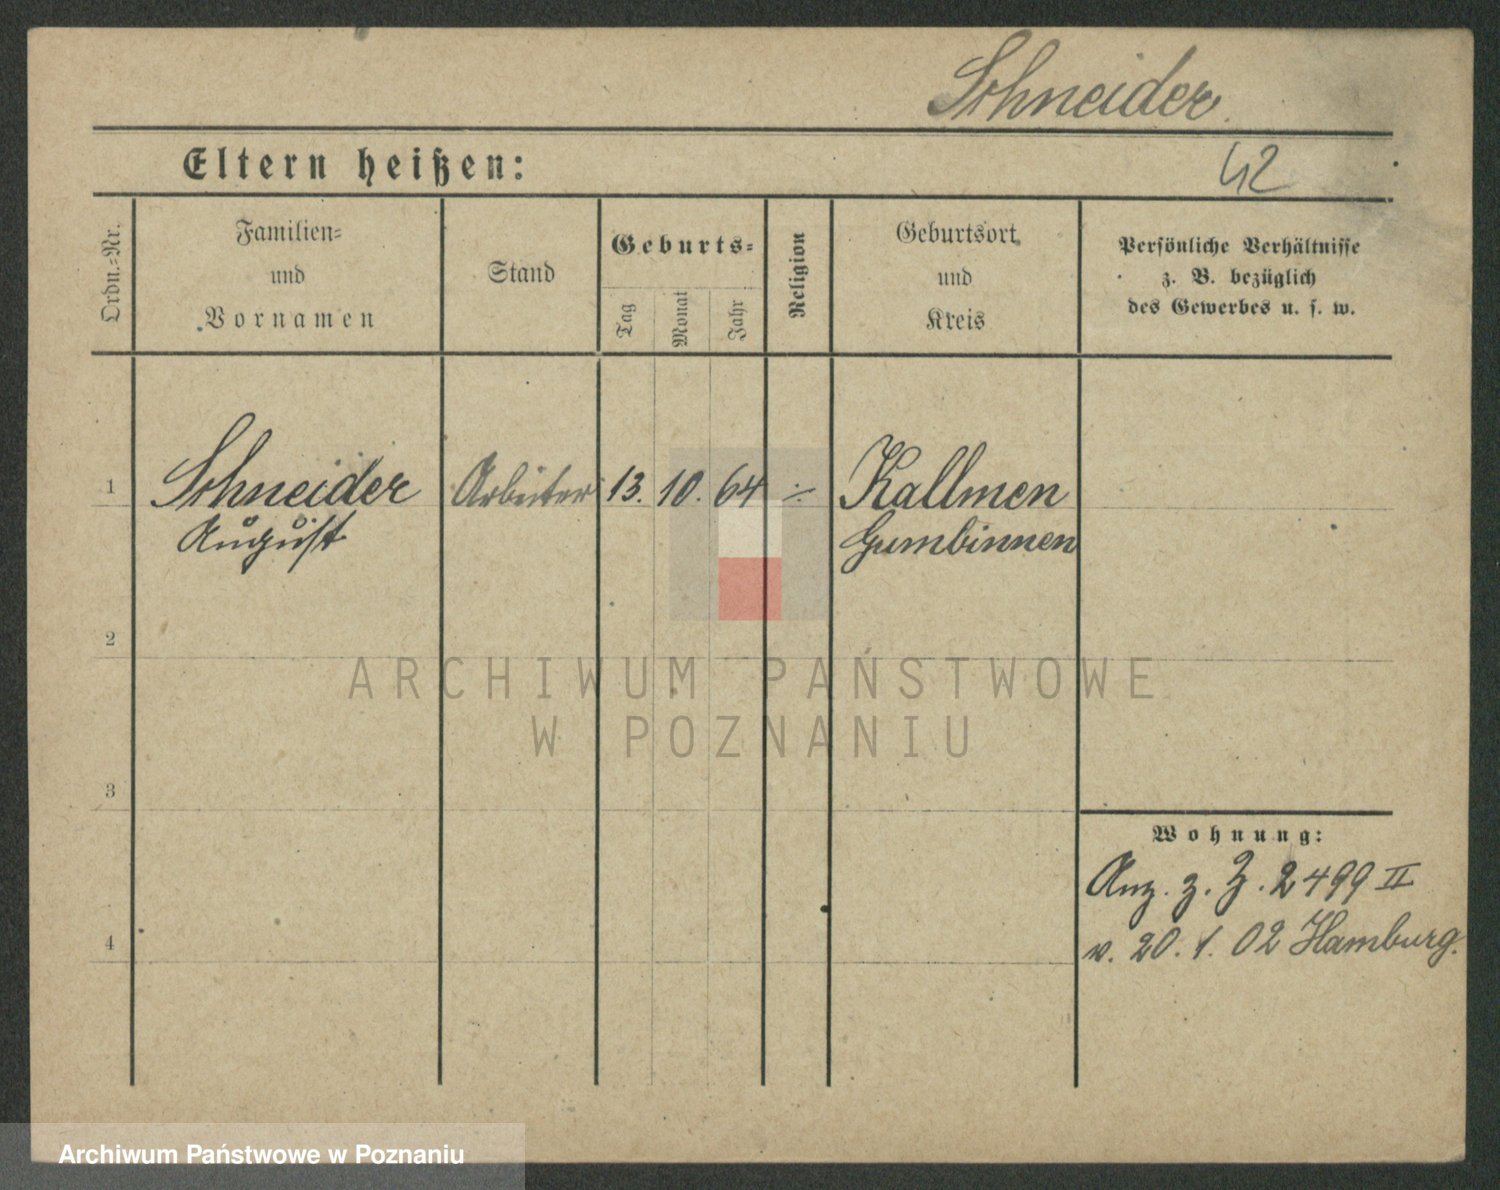 Schneider
42
Eltern heißen:
Ordn.-Nr.
Familien-
und
Vornamen
Stand
Geburts-
Tag
Monat
Jahr
Religion
Geburtsort
und
Kreis
Persönliche Verhältnisse
z. B. bezüglich
des Gewerbes u. s. w.
1 Schneider Arbeiter 13. 10. 64 ·/· Kallmen
August Gumbinnen
2
ARCHIWUM PAŃSTWOWE
W POZNANIU
3
Wohnung:
Anz. z. Z. 2499 II
4
v. 20. 1. 02 Hamburg.
Archiwum Państwowe w Poznaniu